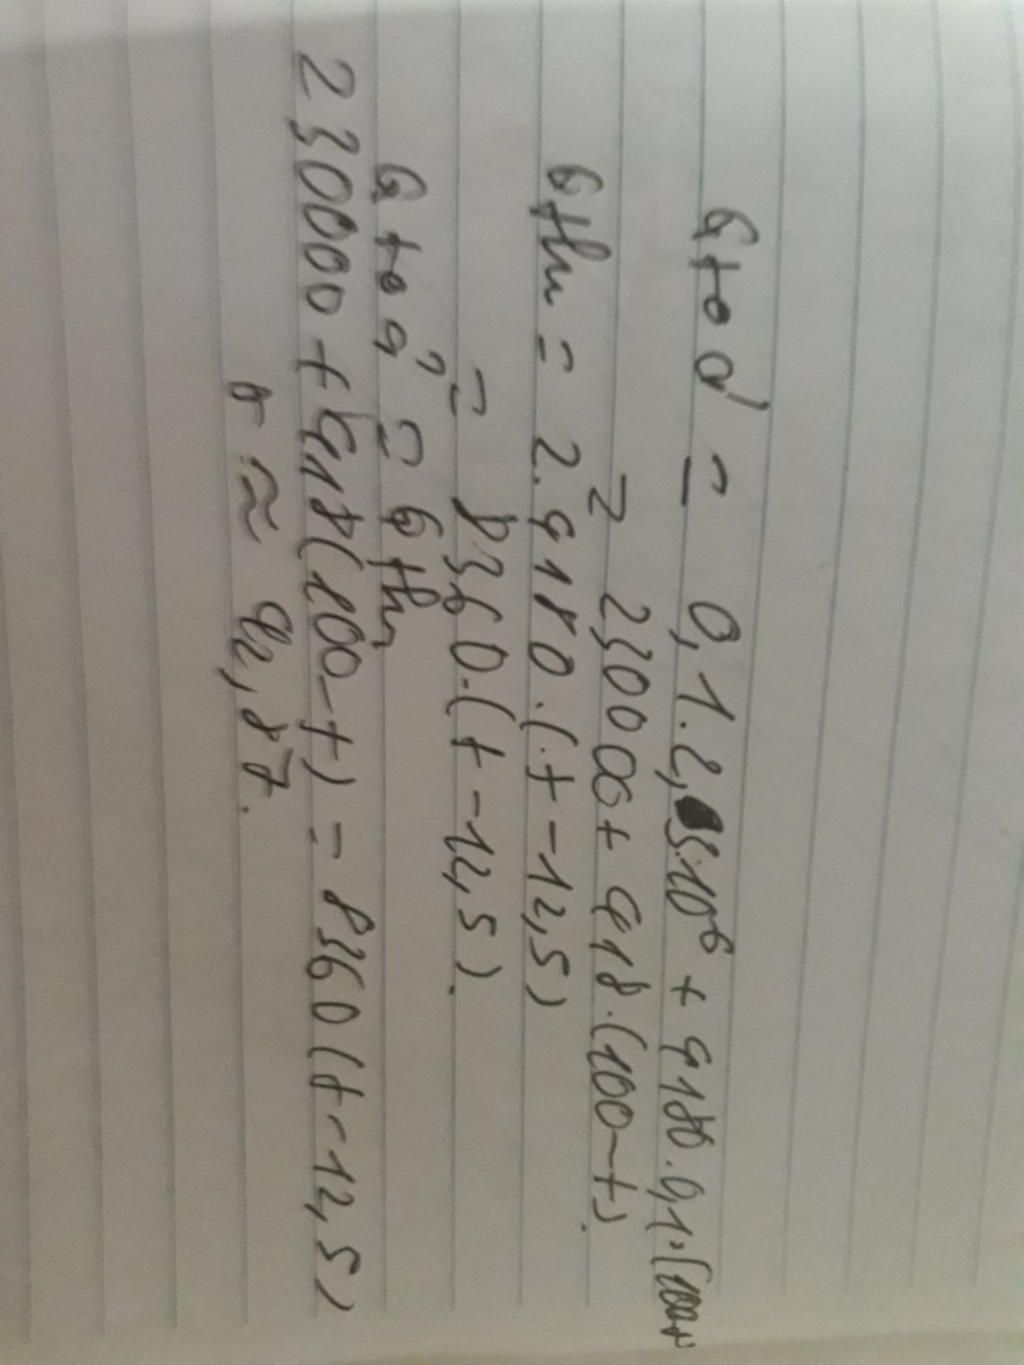 Qtoả = 0,1.2,3.10⁶ + 4180.0,1.(100-t
= 230000 + 418.(100-t).
Qthu = 2.4180.(t-12,5)
= 8360.(t-12,5).
Qtoả = Qthu
230000 + 418(100-t) = 8360(t-12,5)
t ≈ 42,87.